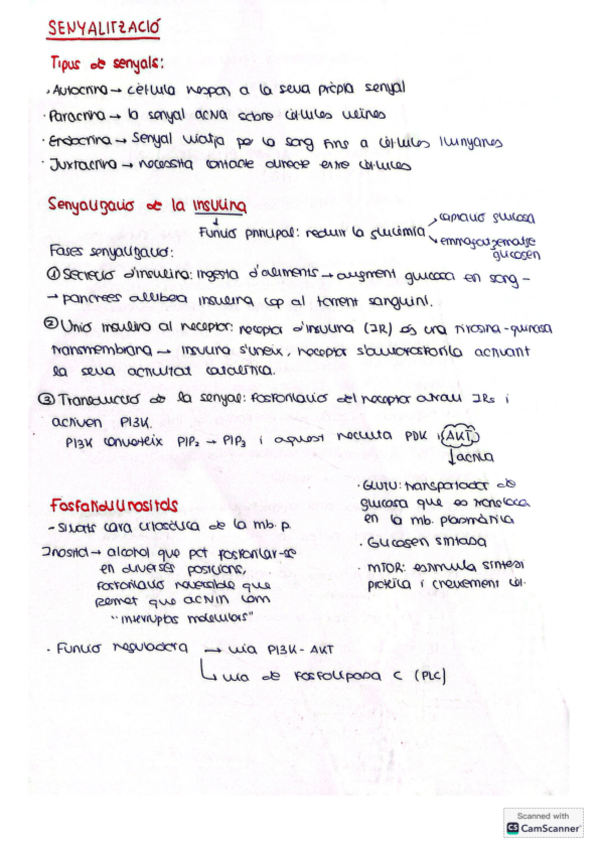 SENYALITZACIÓ
Tipus de senyals:
· Autocrina → cèl·lula respon a la seva pròpia senyal
· Paracrina → la senyal actua sobre cèl·lules veïnes
· Endocrina → Senyal viatja per la sang fins a cèl·lules llunyanes
· Juxtacrina → necessita contacte directe entre cèl·lules
Senyalització de la insulina
Funció principal: reduir la glucèmia
captació glucosa
emmagatzematge
glucosen
Fases senyalització:
① Secreció d'insulina: ingesta d'aliments → augment glucosa en sang -
→ pàncrees allibera insulina cap al torrent sanguini.
② Unió insulina al receptor: receptor d'insulina (IR) és una tirosina-quinasa
transmembrana → insulina s'uneix, receptor s'autofosforila activant
la seva activitat catalítica.
③ Transducció de la senyal: fosforilació del receptor atrau IRS i
activen PI3K.
PI3K converteix PIP₂ → PIP₃ i aquest recluta PDK i AKT
↓ activa
· GLUT4: transportador de
glucosa que es transloca
en la mb. plasmàtica
· Glucosen sintasa
· mTOR: estimula síntesi
proteica i creixement cel.
Fosfatidilinositols
- Situats cara citosòlica de la mb. p.
Inositol → alcohol que pot fosforilar-se
en diverses posicions,
fosforilació reversible que
permet que actuïn com
"interruptors moleculars"
· Funció reguladora → via PI3K - AKT
↳ via de fosfolipasa C (PLC)
Scanned with
CS CamScanner